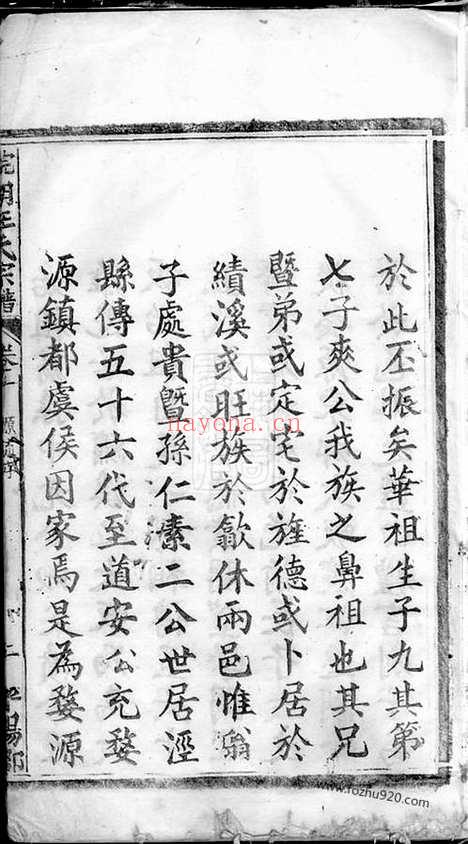 於此丕振矣華祖生子九其第
七子爽公我族之鼻祖也其兄
暨弟或定宅於旌德或卜居於
績溪或旺族於歙休兩邑惟翁
子處貴暨孫仁素二公世居涇
縣傳五十六代至道安公充婺
源鎮都虞侯因家焉是為婺源
汪氏宗譜
卷
nayona.cn
www.fozhu920.com